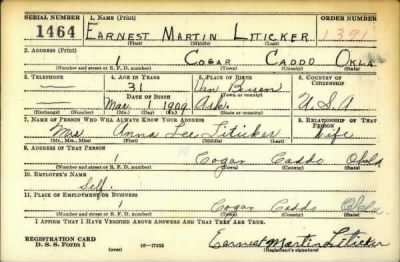 SERIAL NUMBER 1. NAME (Print) ORDER NUMBER
1464 EARNEST MARTIN LITICKER 1391
(First) (Middle) (Last)
2. ADDRESS (Print)
1 COGAR CADDO OKLA
(Number and street or R. F. D. number) (Town) (County) (State)
3. TELEPHONE 4. AGE IN YEARS 5. PLACE OF BIRTH 6. COUNTRY OF CITIZENSHIP
31 Van Buren
DATE OF BIRTH (Town or county)
Mar. 1 1909 Ark. U.S.A
(Exchange) (Number) (Mo.) (Day) (Yr.) (State or country)
7. NAME OF PERSON WHO WILL ALWAYS KNOW YOUR ADDRESS 8. RELATIONSHIP OF THAT PERSON
Mrs Anna Lee Liticker Wife
(Mr., Mrs., Miss) (First) (Middle) (Last)
9. ADDRESS OF THAT PERSON
1 Cogar Caddo Okla
(Number and street or R. F. D. number) (Town) (County) (State)
10. EMPLOYER'S NAME
Self.
11. PLACE OF EMPLOYMENT OR BUSINESS
1 Cogar Caddo Okla.
(Number and street or R. F. D. number) (Town) (County) (State)
I AFFIRM THAT I HAVE VERIFIED ABOVE ANSWERS AND THAT THEY ARE TRUE.
REGISTRATION CARD
D. S. S. Form 1 (over) 16—17105 Earnest Martin Liticker
(Registrant's signature)